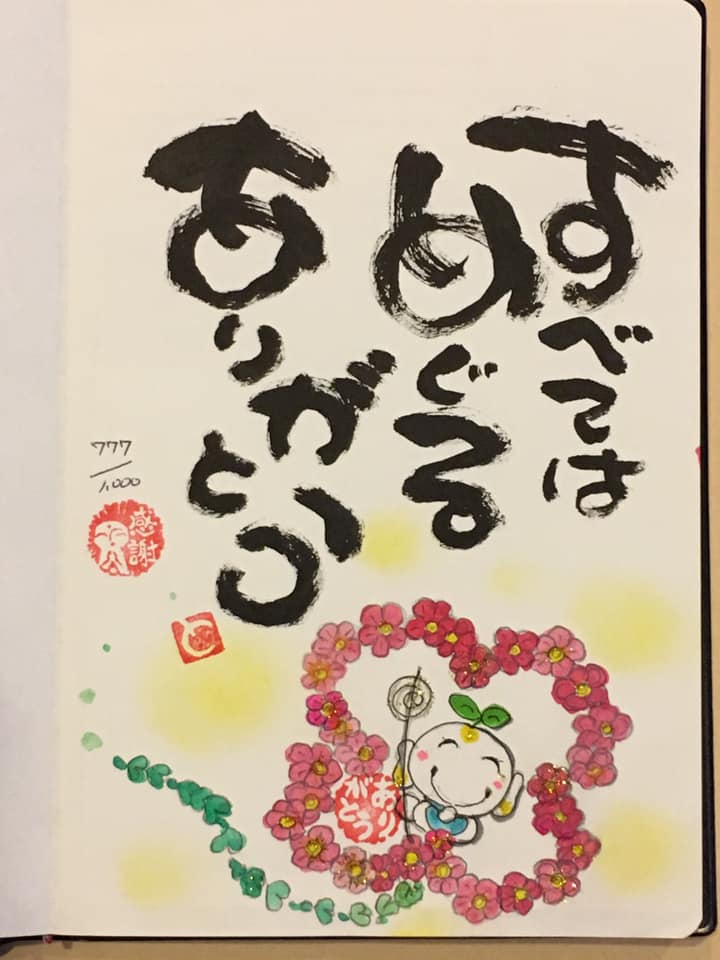 すべては
めぐる
ありがとう
777
1,000
感謝
ありがとう